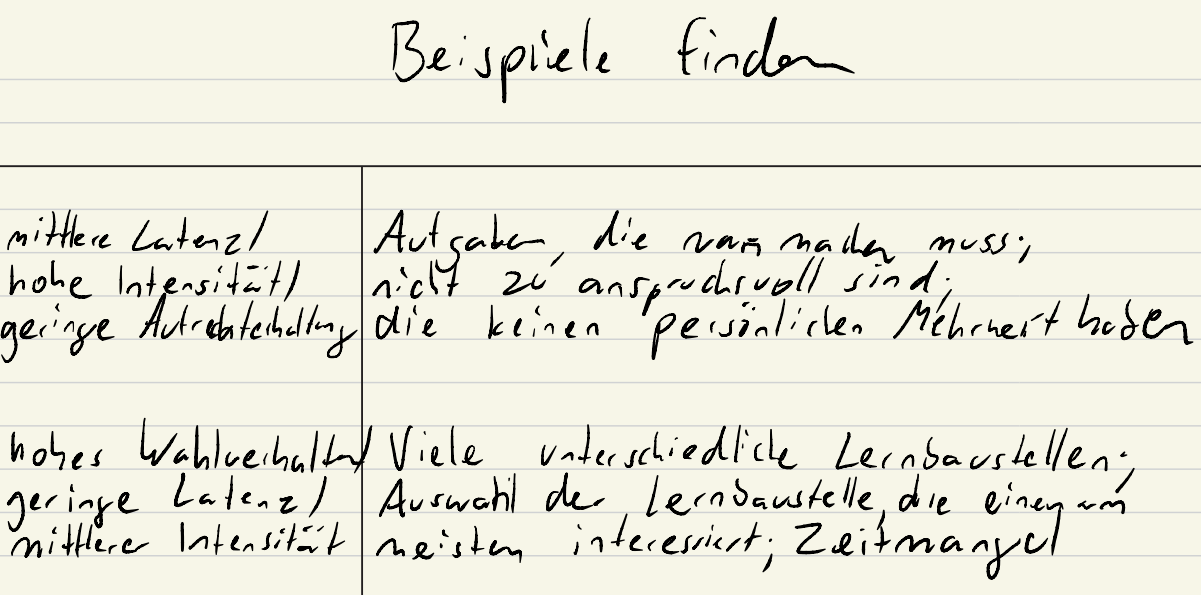 Beispiele finden
mittlere Latenz/
hohe Intensität/
geringe Aufrechterhaltung
Aufgaben, die man machen muss;
nicht zu anspruchsvoll sind;
die keinen persönlichen Mehrwert haben
hohes Wahlverhalten/
geringe Latenz/
mittlerer Intensität
Viele unterschiedliche Lernbaustellen;
Auswahl der Lernbaustelle, die einen am
meisten interessiert; Zeitmangel